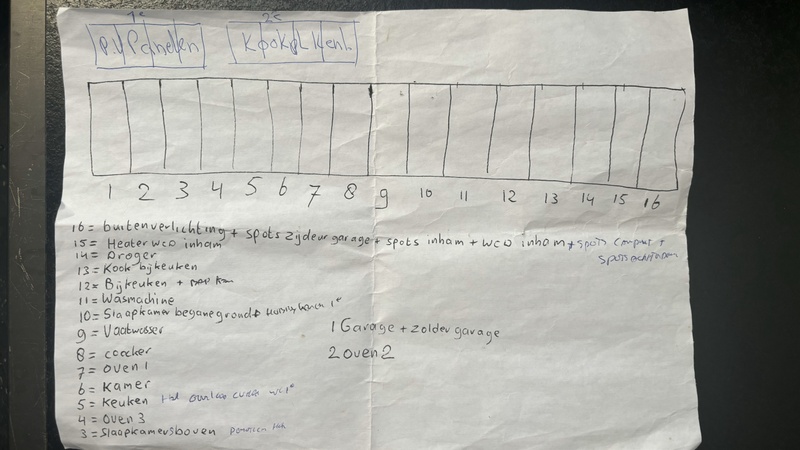 1e 2e
P.V Panelen Kookpl Kenl.
1 2 3 4 5 6 7 8 9 10 11 12 13 14 15 16
16 = buitenverlichting + spots zijdeur garage + spots inham + WCD inham + spots +
15 = Heater WCD inham
14 = Droger
13 = Kook bijkeuken
12 = Bijkeuken +
11 = Wasmachine
10 = Slaapkamer begane grond +
9 = Vaatwasser
1 Garage + zolder garage
8 = coocker
2 oven 2
7 = oven 1
6 = Kamer
5 = Keuken
4 = oven 3
3 = Slaapkamersboven